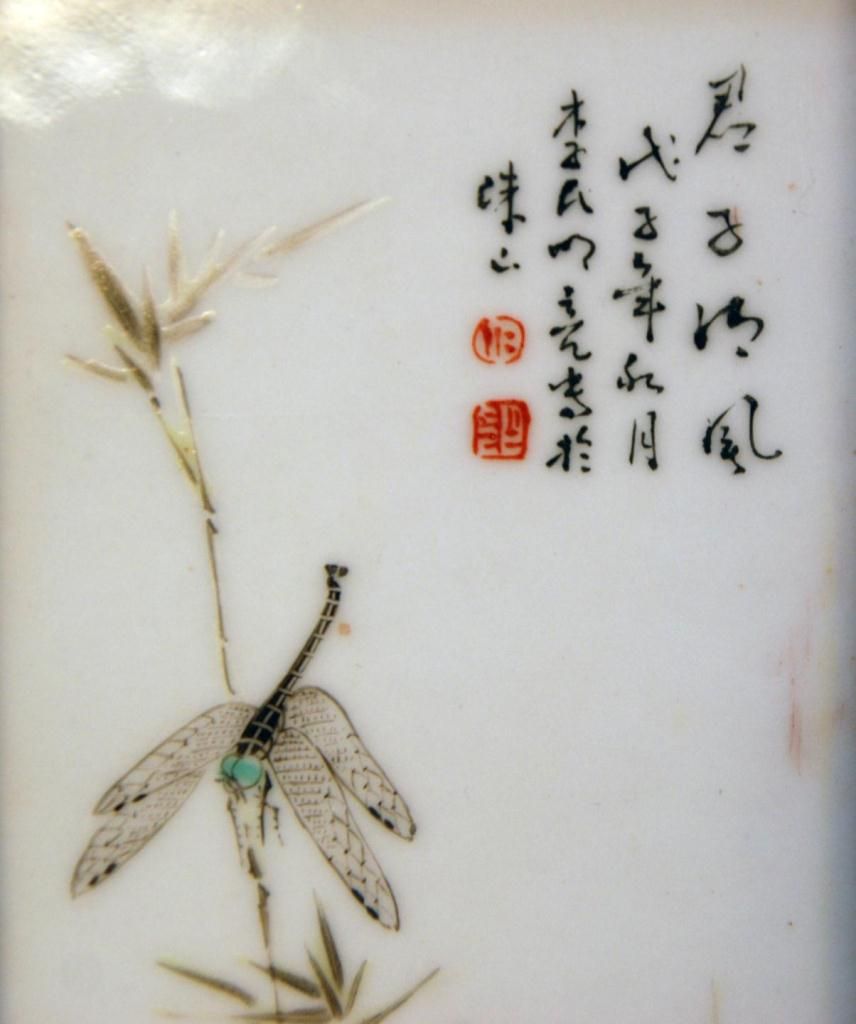 君子清风
戊子年秋月
李氏明亮写於
珠山